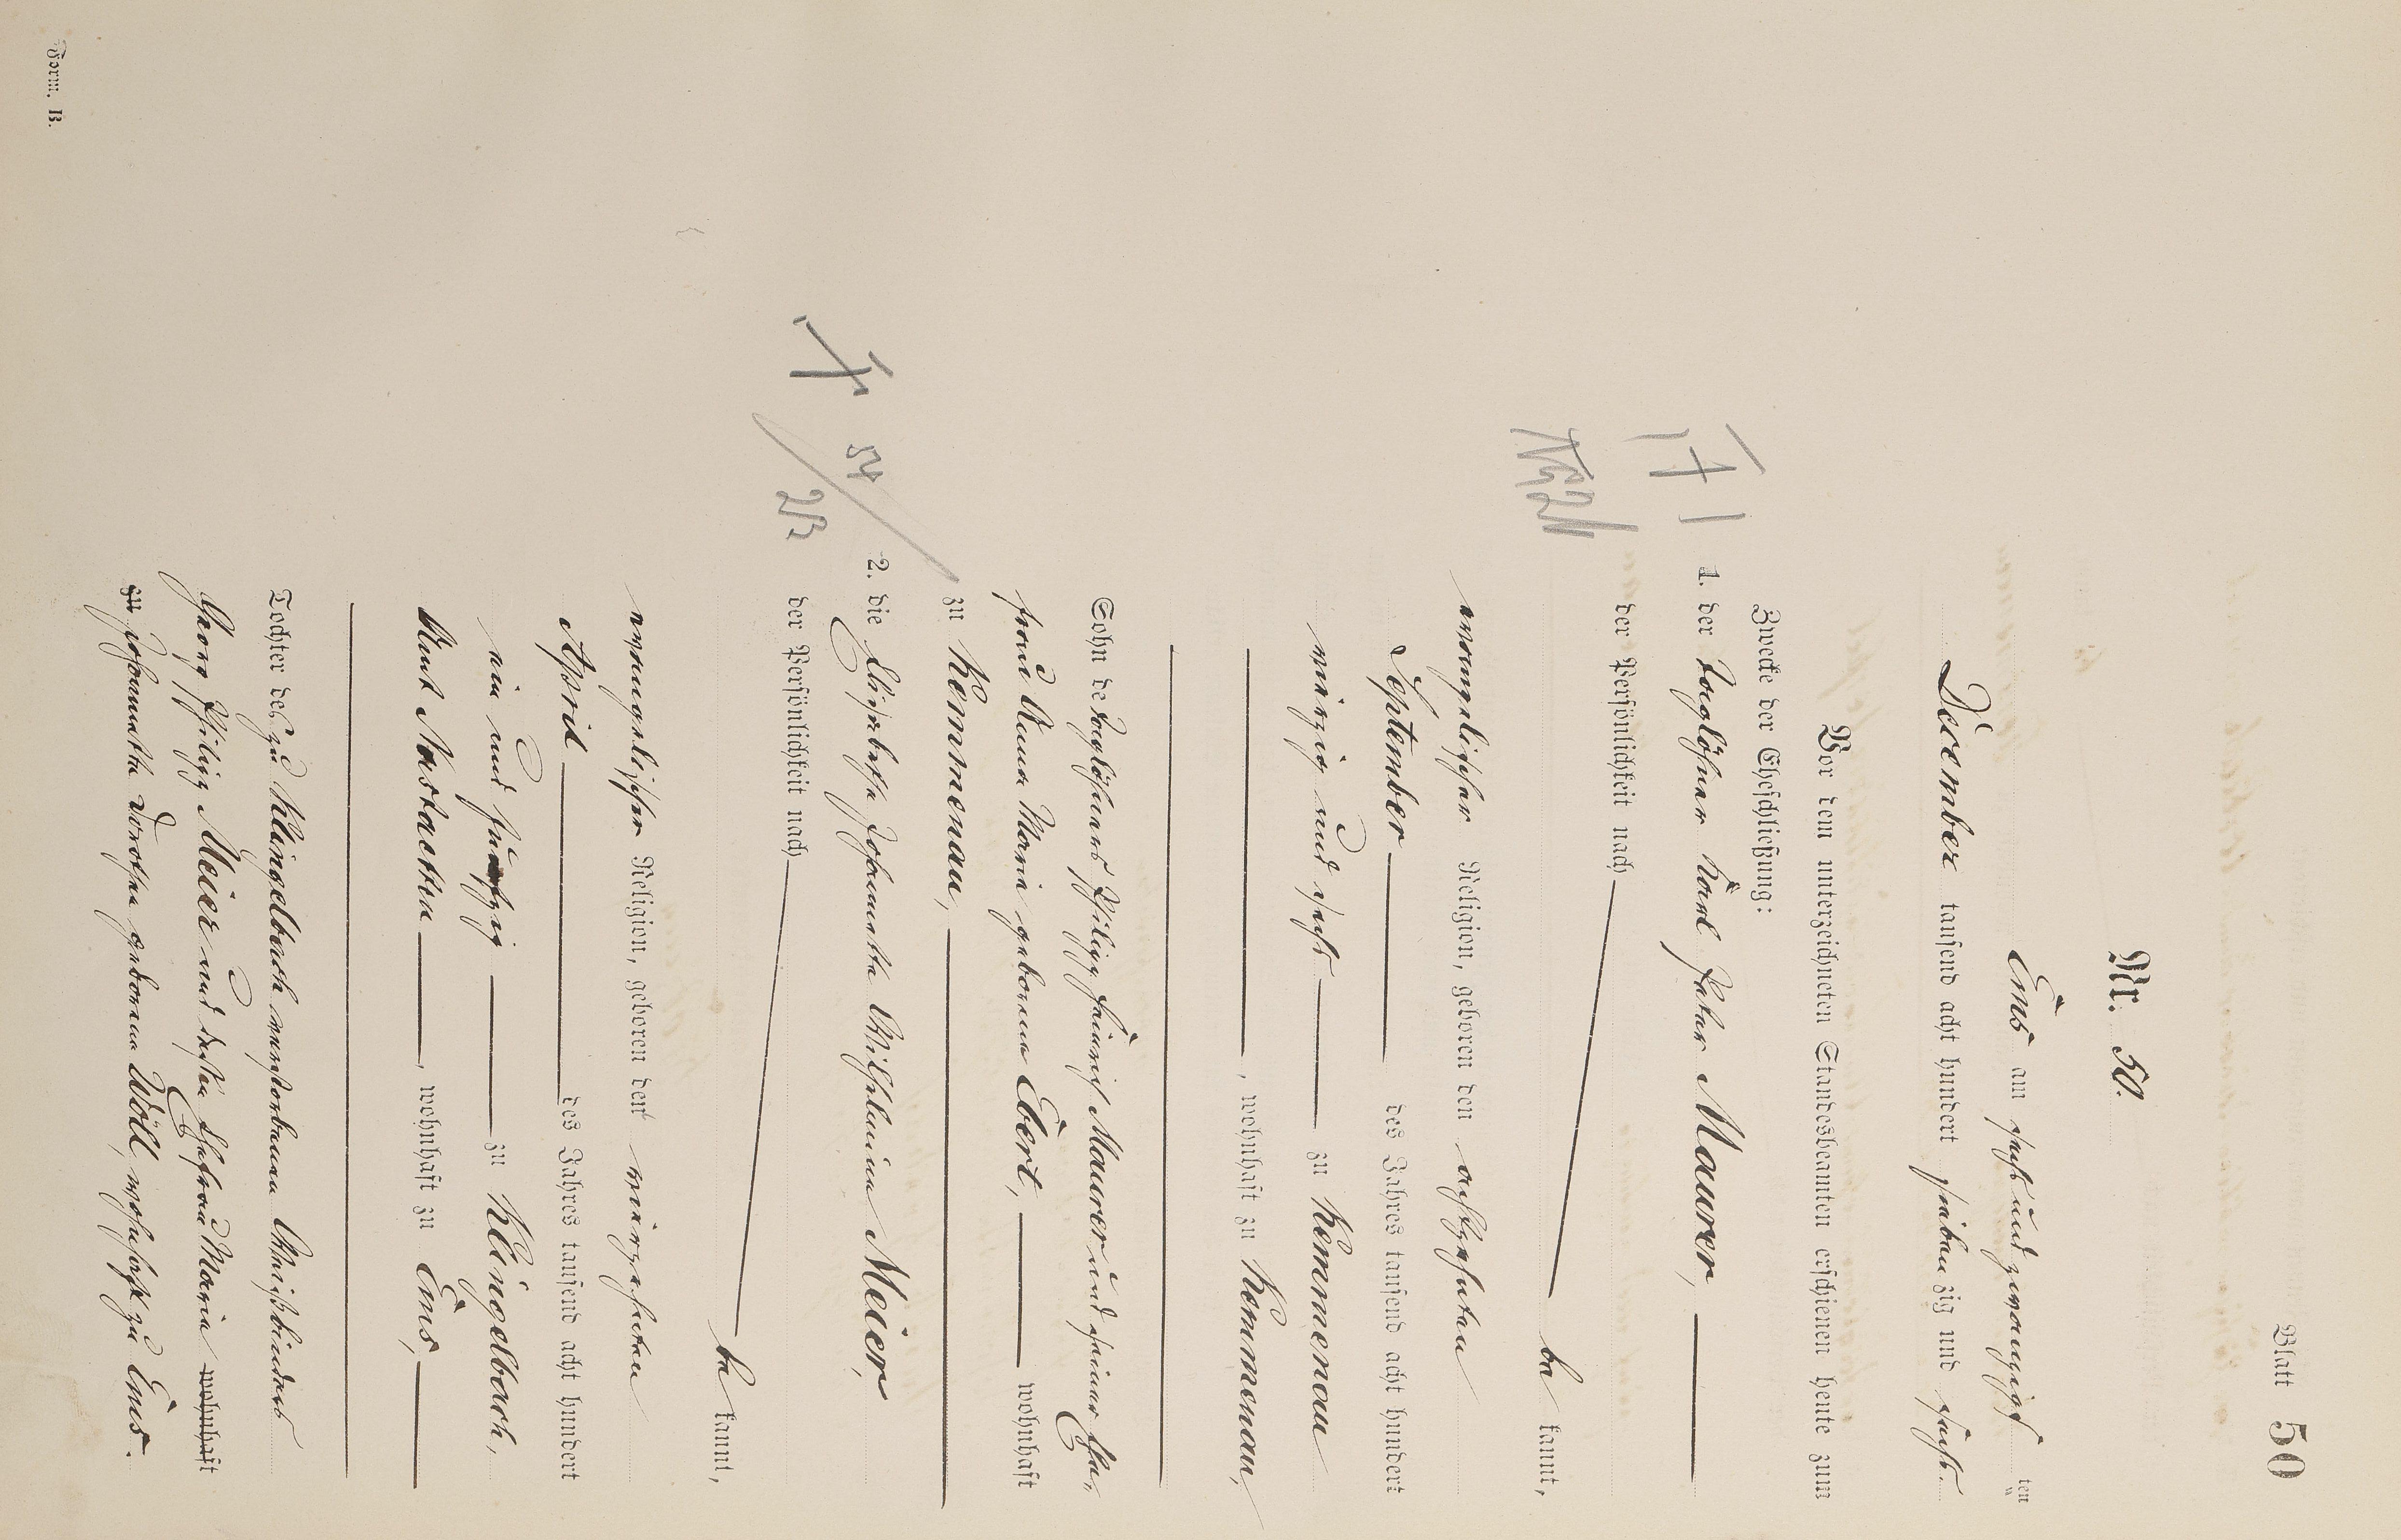 Blatt 50
Nr. 50.
Ems am sechsundzwanzigsten
December tausend acht hundert siebenzig und sechs
Vor dem unterzeichneten Standesbeamten erschienen heute zum
Zwecke der Eheschließung:
1. der Taglöhner Karl Peter Maurer,
der Persönlichkeit nach
be kannt,
evangelischer Religion, geboren den achtzehnten
September des Jahres tausend acht hundert
vierzig und sechs zu Kemmenau
, wohnhaft zu Kemmenau,
Sohn de Taglöhners Philipp Heinrich Maurer und seiner Ehe-
frau Anna Maria geborene Ebert, wohnhaft
zu Kemmenau,
2. die Elisabethe Johannette Wilhelmine Meier,
der Persönlichkeit nach
be kannt,
evangelischer Religion, geboren den vierzehnten
April des Jahres tausend acht hundert
ein und fünfzig zu Klingelbach,
Amt Nastaetten, wohnhaft zu Ems,
Tochter des zu Klingelbach verstorbenen
Georg Philipp Meier und dessen Ehefrau Maria wohnhaft
zu Johannette Dorothea geborene Wöll, wohnhaft zu Ems.
Form. B.